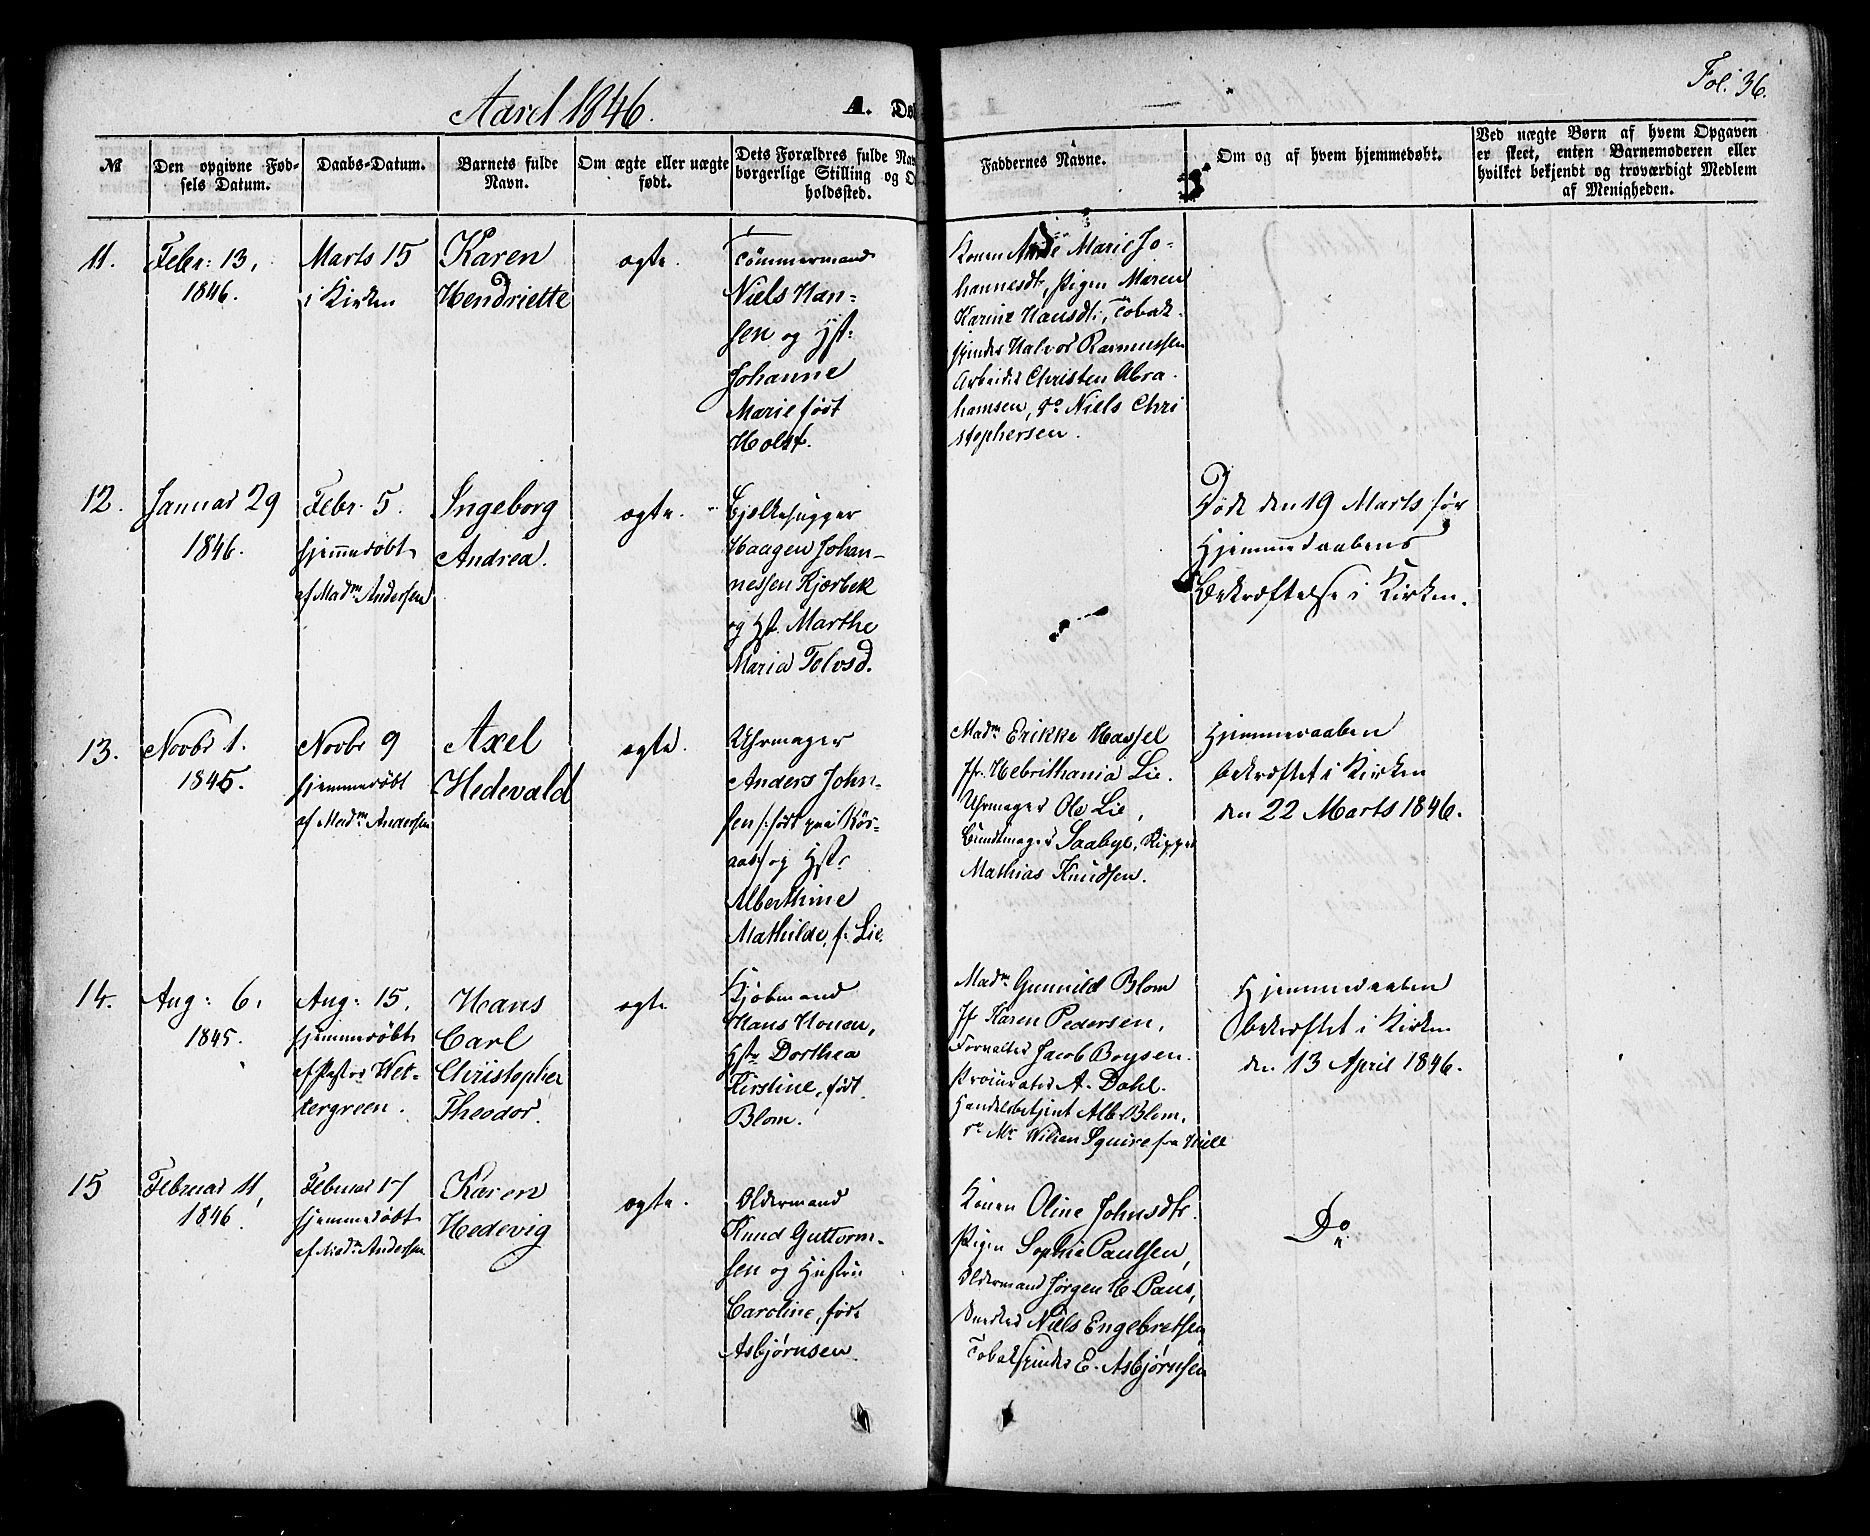 Aaret 1846.
A.
Fol: 36.
№
Den opgivne Fød-
sels Datum.
Daabs-Datum.
Barnets fulde
Navn.
Om ægte eller uægte
født.
Dets Forældres fulde Nav
borgerlige Stilling og O
holdssted.
Faddernes Navne.
Om og af hvem hjemmedøbt.
Ved uægte Børn af hvem Opgaven
er skeet, enten Barnemoderen eller
hvilket bekjendt og troværdigt Medlem
af Menigheden.
11.
Febr: 13,
1846.
Marts 15
i Kirken
Karen
Hendriette
ægte.
Tømmermand
Niels Han-
sen og Hst:
Johanne
Marie født
Holst.
Konen Anne Marie Jo-
hannesdt, Pigen Maren
Karine Hansdt:, Tobak-
spinder Halvor Rasmussen
Arbeider Christen Abra-
hamsen, do Niels Chri
stophersen.
12.
Januar 29
1846.
Febr. 5.
hjemmedøbt
af Madm Andersen
Ingeborg
Andrea.
ægte.
Bjelkehugger
Haagen Johan-
nessen Kjørbek
og Hst. Marthe
Maria Tolvsd.
Døde den 19 Marts før
Hjemmedaabens
Bekræftelse i Kirken.
13.
Novbr 1.
1845.
Novbr 9
hjemmedøbt
af Madm Andersen
Axel
Hedevald
ægte.
Uhrmager
Anders John-
sen /: født paa Kør-
aas/ og Hstr
Alberthine
Mathilde, f. Lie.
Madm Erikke Hassel
Jfr. Hebrithania Lie.
Uhrmager Ole Lie,
Bundtmager Saabye, Skipper
Mathias Knudsen.
Hjemmedaaben
bekræftet i Kirken
den 22 Marts 1846.
14.
Aug: 6.
1845.
Aug: 15,
hjemmedøbt
af Pastor Wet-
tergreen.
Hans
Carl
Christopher
Theodor.
ægte
Kjøbmand
Hans Houen,
Hstr Dorthea
Kirstine, født
Blom.
Madm Gunnild Blom
Jfr Karen Pedersen,
Forvalter Jacob Boysen.
Procurator A. Dahl.
Handelsbetjent Alb. Blom,
do Mr Wilian Squire fra Hull
Hjemmedaaben
bekræftet i Kirken
den 13 April 1846.
15
Februar 11,
1846.
Februar 17
hjemmedøbt
af Madm Andersen
Karen
Hedevig
ægte.
Oldermand
Knud Guttorm-
sen og Hustru
Caroline, født
Asbjørnsen.
Konen Oline Johnsdt.
Pigen Sophie Paulsen,
Oldermand Jørgen H. Paus,
Snedker Niels Engebretsen,
Tobakspinder E. Asbjørnsen
Do